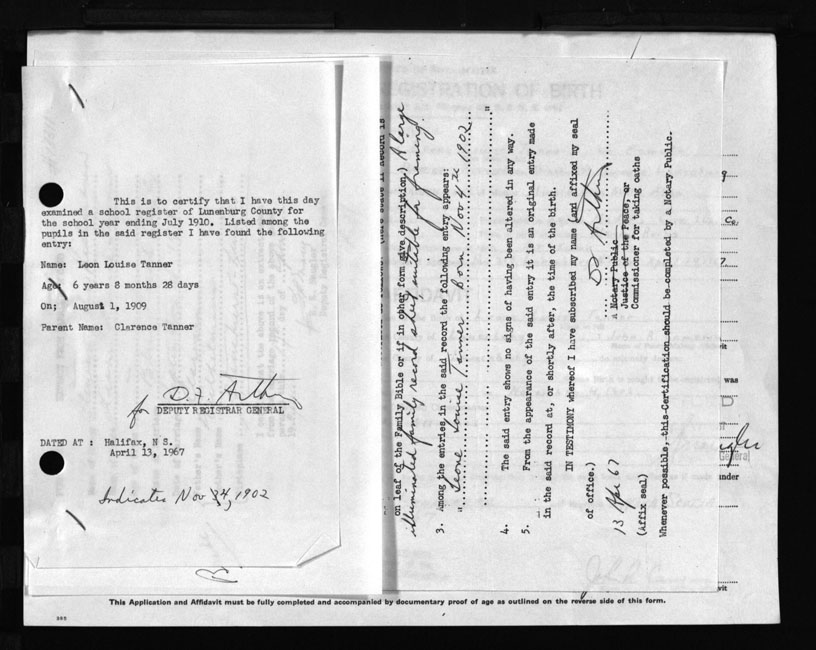 This is to certify that I have this day
examined a school register of Lunenburg County for
the school year ending July 1910. Listed among the
pupils in the said register I have found the following
entry:
Name: Leon Louise Tanner
Age: 6 years 8 months 28 days
On; August 1, 1909
Parent Name: Clarence Tanner
D.F. Arthur
for DEPUTY REGISTRAR GENERAL
DATED AT : Halifax, N S.
April 13, 1967
Indicates Nov 4, 1902
on leaf of the Family Bible or if in other form give description.) A large
illuminated family record sheet suitable for framing.
3. Among the entries in the said record the following entry appears:
" Leone Louise Tanner Born Nov 4th 1902 "
4. The said entry shows no signs of having been altered in any way.
5. From the appearance of the said entry it is an original entry made
in the said record at, or shortly after, the time of the birth.
IN TESTIMONY whereof I have subscribed my name (and affixed my seal
of office.)
DF Arthur
13 Apr 67
a Notary Public
Justice of the Peace, or
Commissioner for taking oaths
(Affix seal)
Whenever possible, this Certification should be completed by a Notary Public.
REGISTRATION OF BIRTH
Co.
7
was
D
General
under
This Application and Affidavit must be fully completed and accompanied by documentary proof of age as outlined on the reverse side of this form.